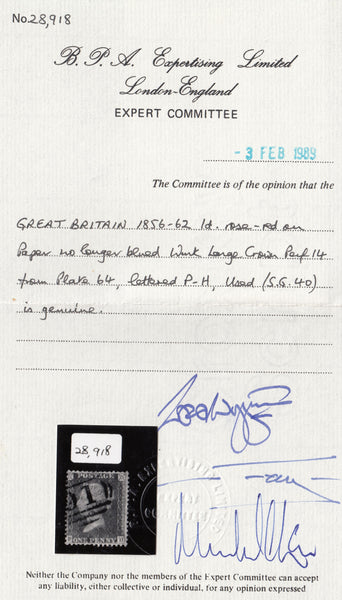 No.28,918
B. P. A. Expertising Limited
London-England
EXPERT COMMITTEE
- 3 FEB 1989
The Committee is of the opinion that the
GREAT BRITAIN 1856-62 1d. rose-red on
Paper no longer blued Wmk Large Crown Perf 14
from Plate 64, lettered P-H, Used (S.G. 40)
is genuine.
28,918
POSTAGE
ONE PENNY
Neither the Company nor the members of the Expert Committee can accept
any liability, either collective or individual, for any opinion expressed